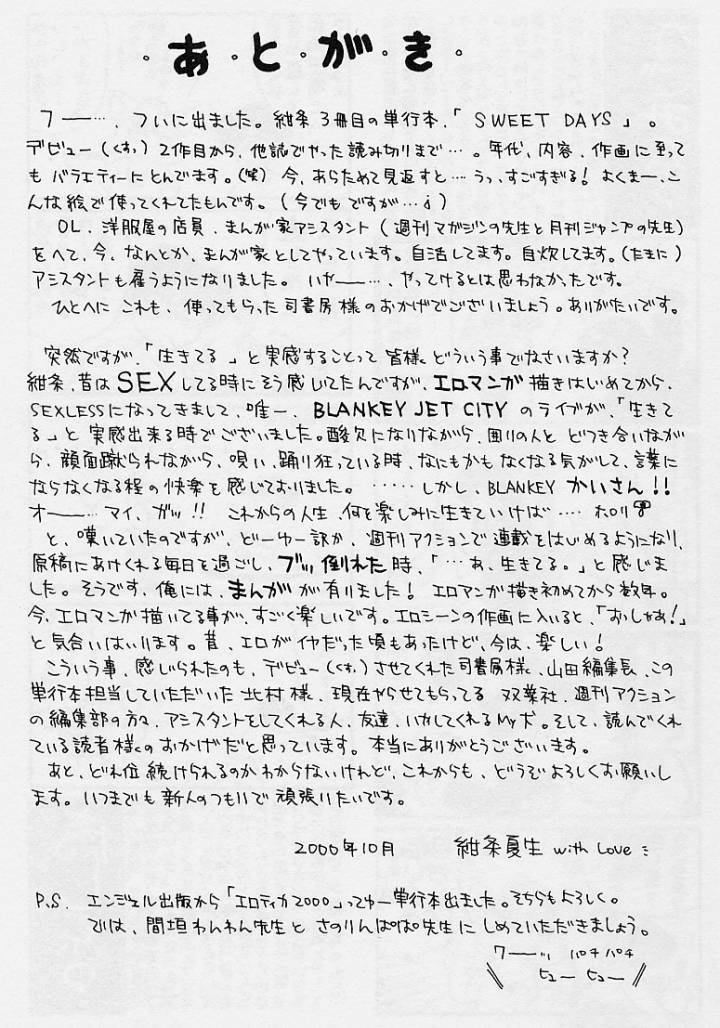 ・あ・と・が・き・
フー……、ついに出ました。紺条3冊目の単行本、「SWEET DAYS」。
デビュー(くすっ)2作目から、他誌でやった読み切りまで…。年代、内容、作画に至って
も バラエティーにとんでます。(笑) 今、あらためて見返すと…うっ、すごすぎる! よくまー、こ
んな絵で使ってくれてたもんです。(今でもですが…;)
OL、洋服屋の店員、まんが家アシスタント(週刊マガジンの先生と月刊ジャンプの先生)
をへて、今、なんとか、まんが家としてやっています。自活してます。自炊してます。(たまに)
アシスタントも雇うようになりました。いやー…、やってけるとは思わなかったです。
ひとへに これも、使ってもらった司書房様のおかげでございましょう。ありがたいです。
突然ですが、「生きてる」と実感することって 皆様、どういう事でなさいますか?
紺条、昔はSEXしてる時にそう感じてたんですが、エロマンガ描きはじめてから、
SEXLESSになってきまして、唯一、BLANKEY JET CITY のライブが、「生きて
る」と 実感出来る時でございました。酸欠になりながら、囲りの人と どつき合いなが
ら、顔面蹴られながら、唄い、踊り狂っている時、なにもかも なくなる気がして、言葉に
ならなくなる程の快楽を感じておりました。……しかし、BLANKEY かいさん!!
オー……マイ、ガッ!! これからの人生、何を楽しみに生きていけば…… ホロリ
と、嘆いていたのですが、どーゆー訳か、週刊アクションで連載をはじめるようになり、
原稿にあけくれる毎日を過ごし、ブッ倒れた時、「…あ、生きてる。」と感じま
した。そうです、俺には、まんがが有りました! エロマンガ描き初めてから数年。
今、エロマンガ描いてる事が、すごく楽しいです。エロシーンの作画に入いると、「おっしゃあ!」
と気合いはいります。昔、エロがイヤだった頃もあったけど、今は、楽しい!
こういう事、感じられたのも、デビュー(くすっ)させてくれた司書房様、山田編集長、この
単行本担当していただいた北村様、現在やらせてもらってる 双葉社、週刊アクション
の編集部の方々、アシスタントをしてくれる人、友達、いかしてくれるMy犬。そして、読んでくれ
ている読者様のおかげだと思っています。本当にありがとうございます。
あと、どれ位続けられるのかわからないけれど、これからも、どうぞよろしくお願いし
ます。いつまでも新人のつもりで頑張りたいです。
2000年10月 紺条夏生 with Love
P.S. エンジェル出版から「エロティカ2000」ってゆー単行本出ました。そちらもよろしく。
では、間垣わんわん先生と さのりんぱぱ先生に しめていただきましょう。
ワーッ パチパチ
ヒューヒュー